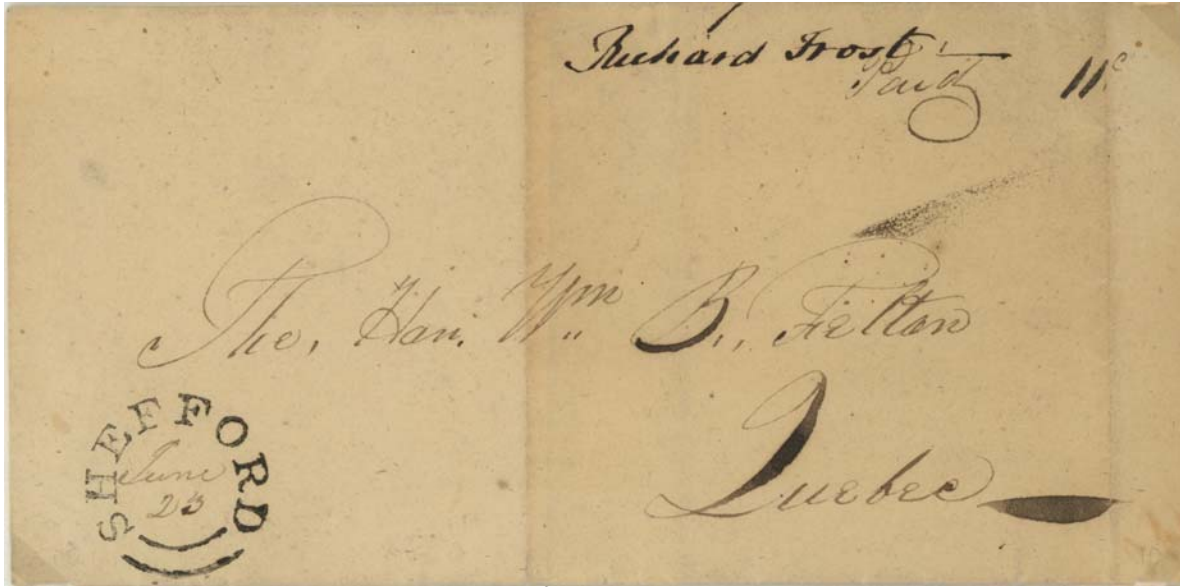 Richard Frost
Paid 11
The, Hon. Wm. B., Felton
Quebec
SHEFFORD
June
23